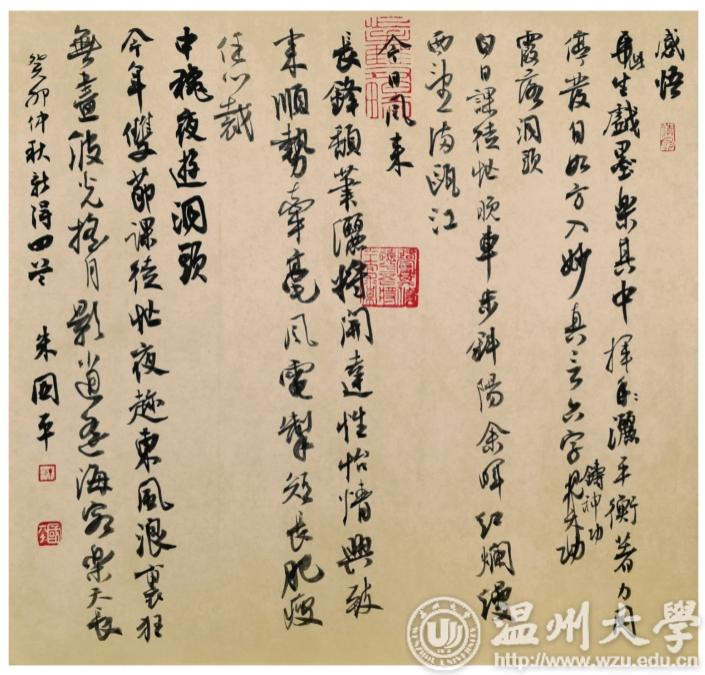 感悟
生戲墨樂其中揮灑平衡著力
停蓄日如方入妙真言六字把矢功
鑄神功
霞落洞頭
白日課徒忙晚車步斜陽余暉紅爛漫
西望滿甌江
今日風來
長鋒韻筆灑將開達性怡情興致
來順勢牽毫風電掣短長肥瘦
任心裁
中穐夜遊洞頭
今年雙節課徒忙夜趣東風浪裏狂
無畫波光搖月影逍遙海客樂天長
癸卯仲秋新得四首 朱國平
温州大學
http://www.wzu.edu.cn